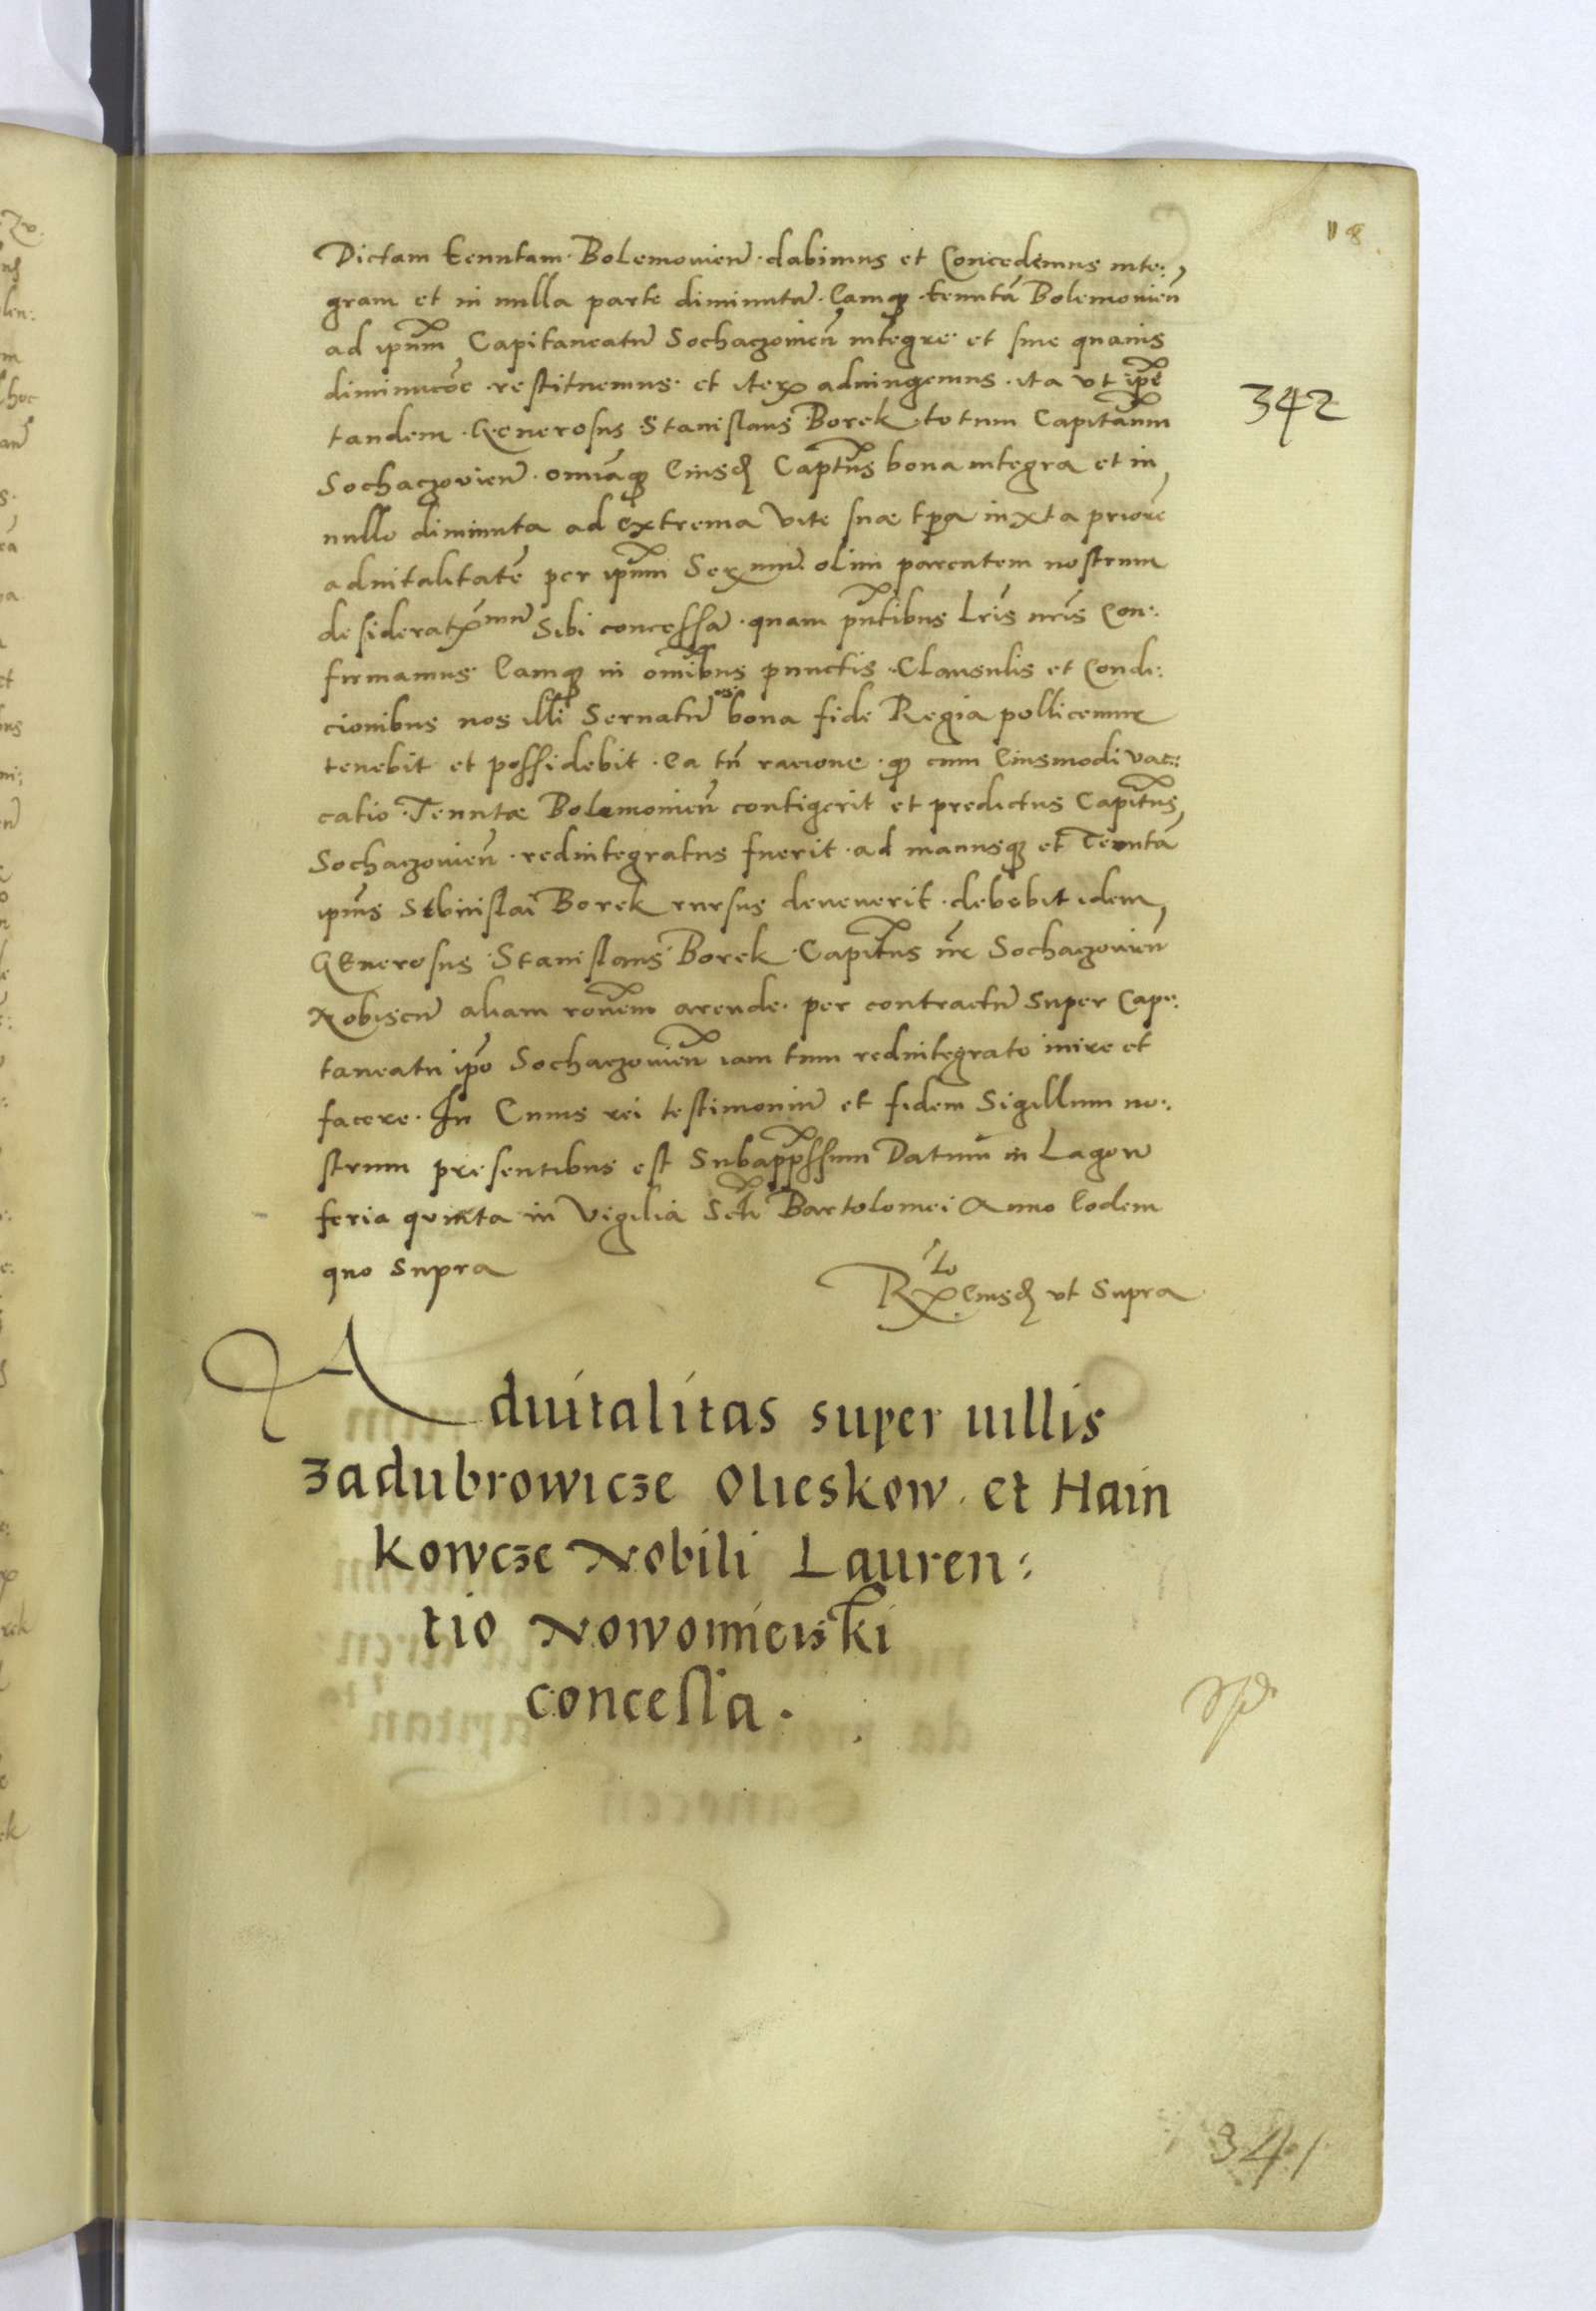 118
Dictam tenutam Bolemouien̄ dabimus et Concedemus inte:
gram et in nulla parte diminutā. Eamq̨ tenutā Bolemouien̄
ad ip̄um Capitaneatū Sochaczouien̄ integre et sine quauis
diminucōe restituemus et iterꝝ adiungemus ita vt ip̄e
tandem Generosus Stanislaus Borek totum Capitan̄m
342
Sochaczouien̄ omīaq̨ Eiusd̨ Captus̄ bona integra et in
nullo diminuta ad Extrema vite suae tp̄a iuxta priorē
aduitalitatē per ip̄um Serꝝmū olim parentem nostrum
desideratꝝmū Sibi concessā quam pn̄tibus Lr̄is nr̄is Con:
firmamus Eamq̨ in om̄ibus punctis Clausulis et Condi:
cionibus nos illi Seruaturos bona fide Regia pollicemur
tenebit et possidebit. Ea tn̄ racione q̨ cum Eiusmodi vac:
catio Tenutae Bolemouien̄ contigerit et predictus Capitn̄us
Sochaczouien̄ redintegratus fuerit ad manusq̨ et Tenutā
ip̄ius Stanislai Borek rursus deuenerit debebit idem
Generosus Stanislaus Borek Capitn̄us nr̄ Sochaczouien̄
Nobiscū aliam ron̄em arende per contractū Super Cape:
taneatu ip̄o Sochaczouien̄ iam tum redintegrato inire et
facere. In Cuius rei testimoniū et fidem Sigillum no:
strum presentibus est Subapp̄ssum Datum in Lagow
feria quinta in Vigilia Scti Bartolomei Anno Eodem
quo Supra
Rꝝlo Eiusd̨ vt Supra
Aduitalitas super uillis
Zadubrowicze Olieskow et Hain
kowcze Nobili Lauren:
tio Nowomieiski
concessa.
341